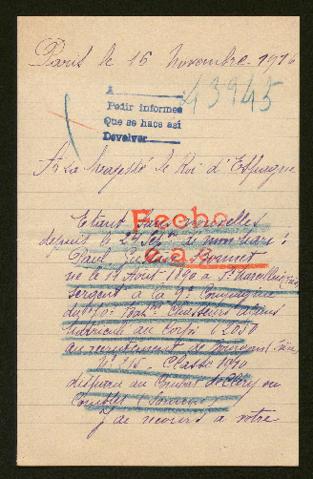 Paris le 16 Novembre 1916
43945
A
Pedir informes
Que se hace así
Devolver
A Sa Majesté le Roi d'Espagne
Fecho
Etant sans nouvelles
depuis le 24 Sept de mon mari :
Paul Bonnet
né le 1 Août 1890 à
sergent à la 9e Compagnie
du Bat. Chasseurs à pied
Matricule au corps
au recrutement de
Classe 1910
disparu au Combat de Cléry ou
Combles (Somme)
j'ai recours à votre